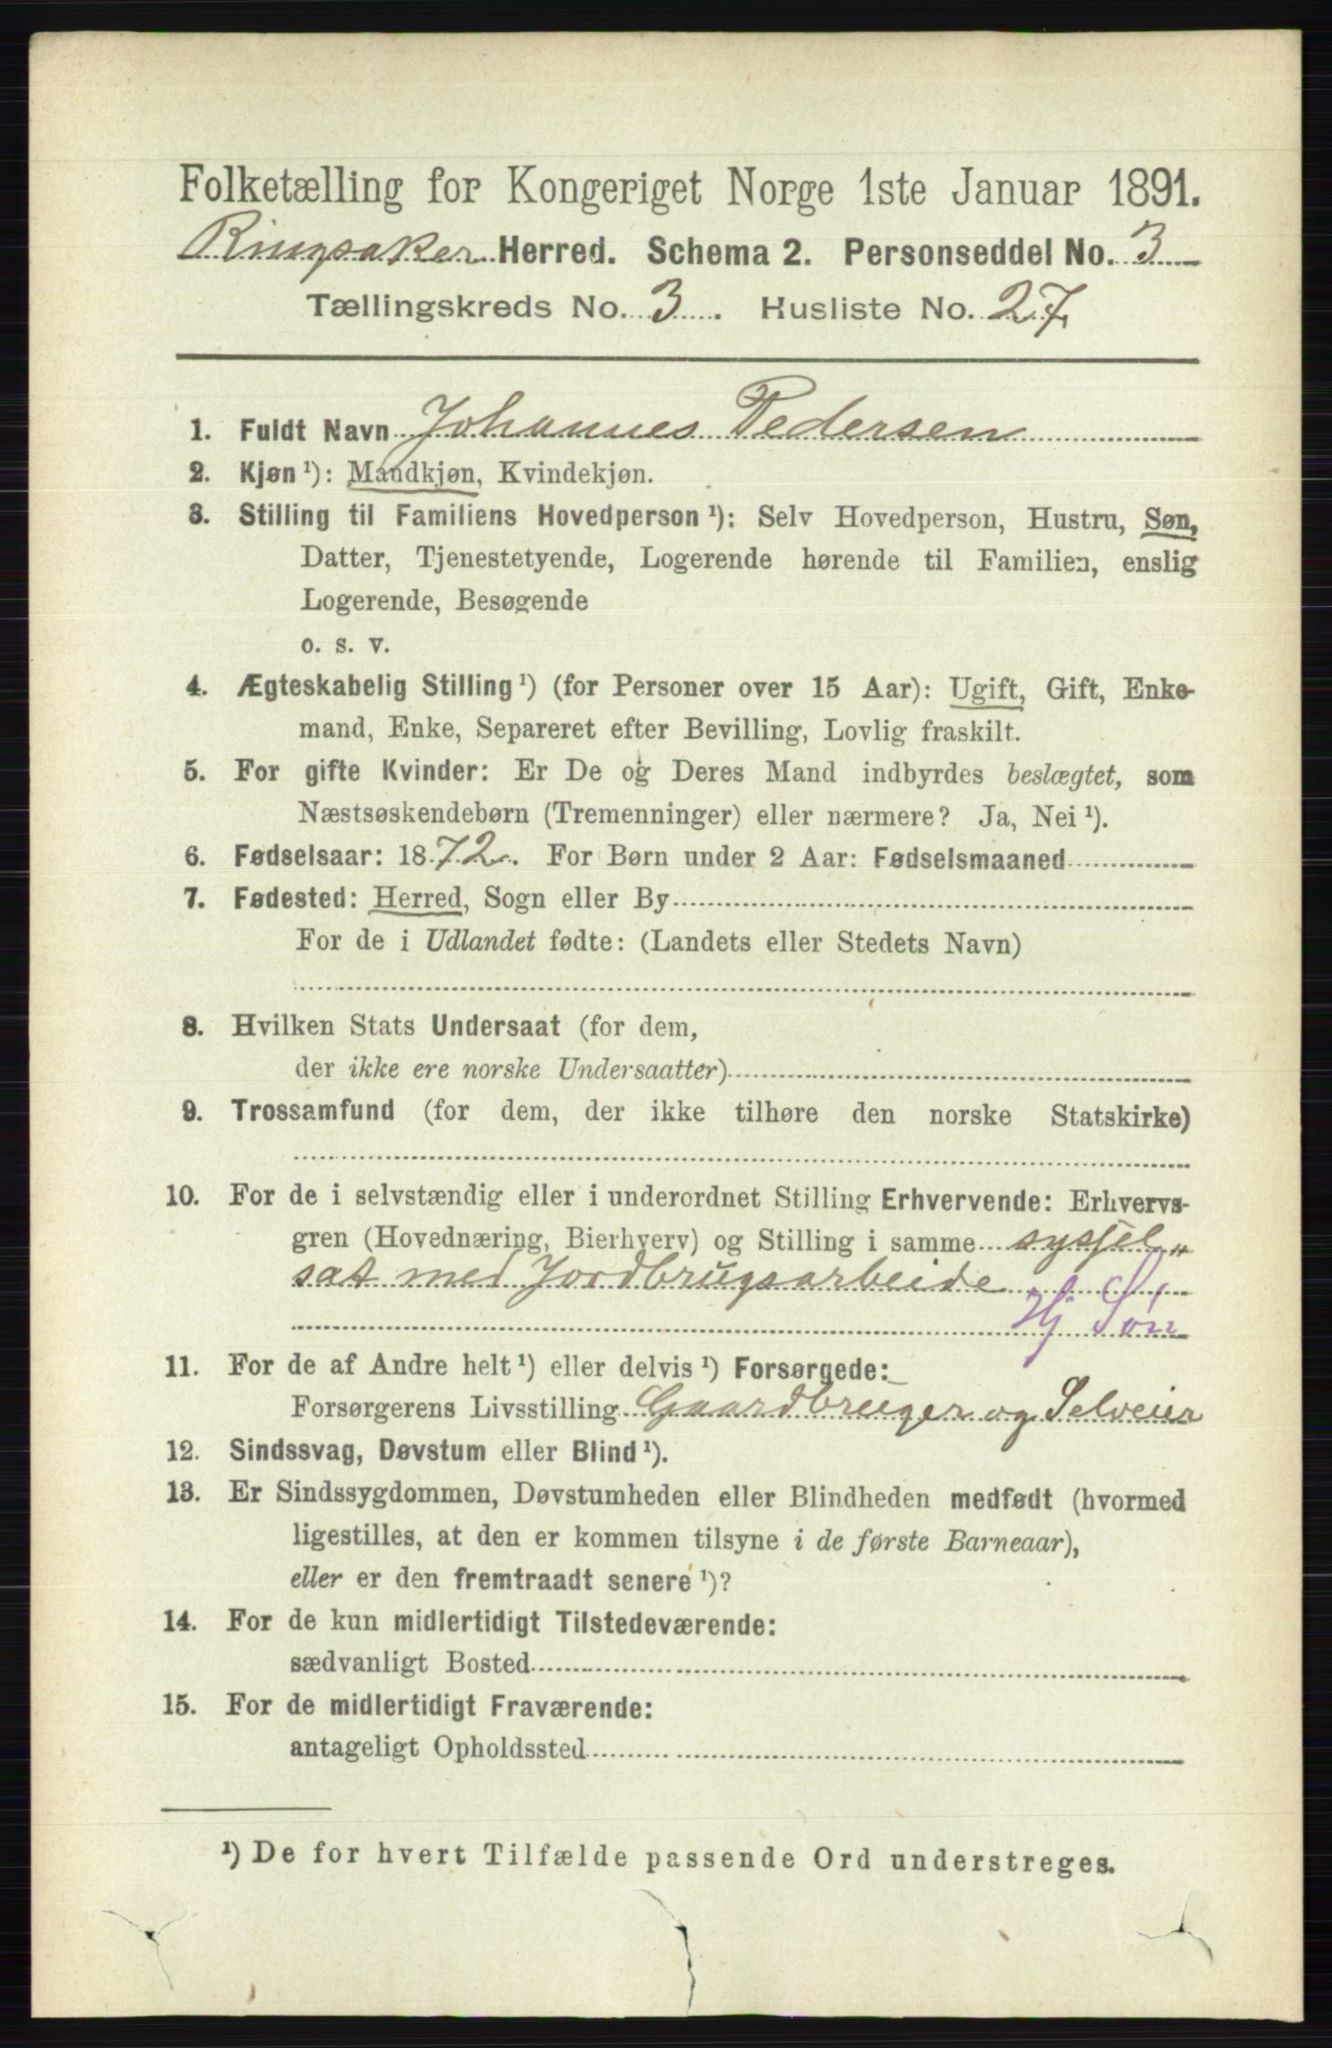 Folketælling for Kongeriget Norge 1ste Januar 1891.
Ringsaker Herred. Schema 2. Personseddel No. 3
Tællingskreds No. 3. Husliste No. 27
1. Fuldt Navn Johannes Pedersen
2. Kjøn ¹): Mandkjøn, Kvindekjøn.
3. Stilling til Familiens Hovedperson ¹): Selv Hovedperson, Hustru, Søn,
Datter, Tjenestetyende, Logerende hørende til Familien, enslig
Logerende, Besøgende
o. s. v.
4. Ægteskabelig Stilling ¹) (for Personer over 15 Aar): Ugift, Gift, Enke-
mand, Enke, Separeret efter Bevilling, Lovlig fraskilt.
5. For gifte Kvinder: Er De og Deres Mand indbyrdes beslægtet, som
Næstsøskendebørn (Tremenninger) eller nærmere? Ja, Nei ¹).
6. Fødselsaar: 1872. For Børn under 2 Aar: Fødselsmaaned
7. Fødested: Herred, Sogn eller By
For de i Udlandet fødte: (Landets eller Stedets Navn)
8. Hvilken Stats Undersaat (for dem,
der ikke ere norske Undersaatter)
9. Trossamfund (for dem, der ikke tilhøre den norske Statskirke)
10. For de i selvstændig eller i underordnet Stilling Erhvervende: Erhvervs-
gren (Hovednæring, Bierhverv) og Stilling i samme syssel„
sat med Jordbrugsarbeide
Hj Søn
11. For de af Andre helt ¹) eller delvis ¹) Forsørgede:
Forsørgerens Livsstilling Gaardbruger og Selveier
12. Sindssvag, Døvstum eller Blind ¹).
13. Er Sindssygdommen, Døvstumheden eller Blindheden medfødt (hvormed
ligestilles, at den er kommen tilsyne i de første Barneaar),
eller er den fremtraadt senere ¹)?
14. For de kun midlertidigt Tilstedeværende:
sædvanligt Bosted
15. For de midlertidigt Fraværende:
antageligt Opholdssted
¹) De for hvert Tilfælde passende Ord understreges.